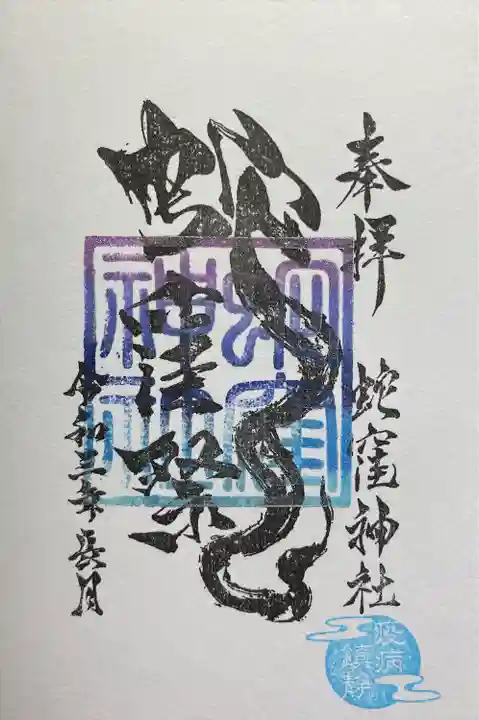 奉拝 蛇窪神社
蛇窪
神社
令和三年長月
疫病
鎮静